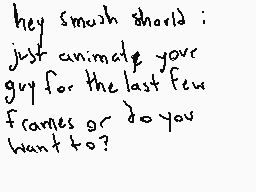 hey smash should i
just animate your
guy for the last few
frames or do you
want to?